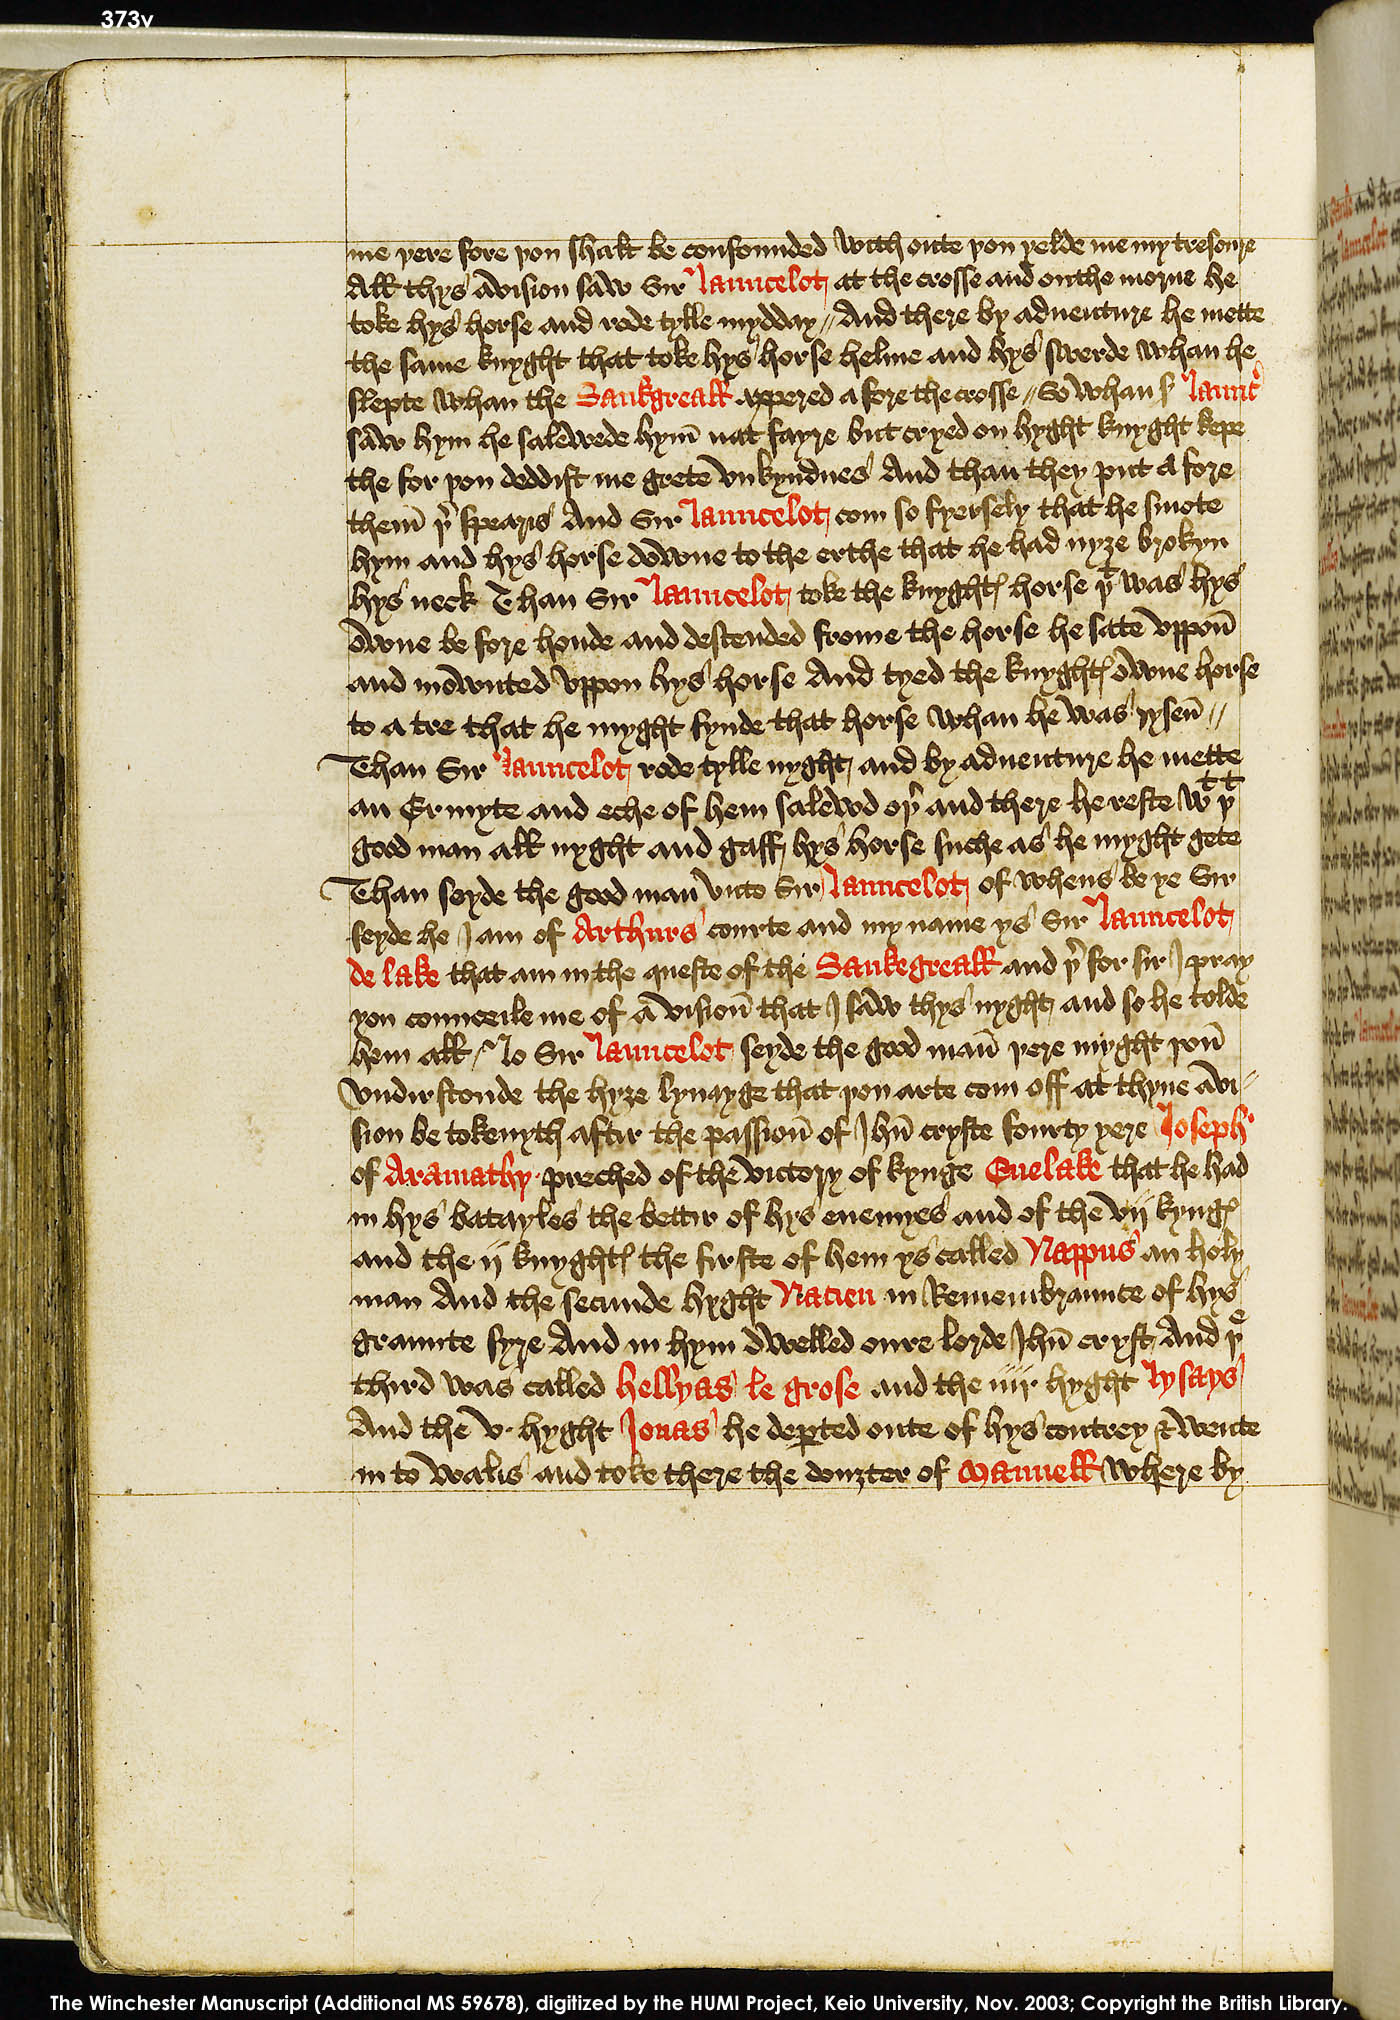 373v
me þere fore þou shalt be confounded with oute þou yelde me my tresoure
All thys avision saw Sir Launcelot at the crosse and on the morne he
toke hys horse and rode tylle mydday // And there by adventure he mette
the same knyght that toke hys horse helme and hys swerde whan he
slepte whan the Sankgreall appered a fore the crosse // So whan sʳ Launcʳ
saw hym he salewede hym̄ nat fayre but cryed on hyght knyght kepe
the for þou deddist me grete vnkyndnes And than they put a fore
them̄ þʳ spearis And Sir Launcelot com so fyersely that he smote
hym and hys horse downe to the erthe that he had nyȝe brokyn
hys neck Than Sir Launcelot toke the knyghtꝭ horse þᵗ was hys
owne be fore honde and descended frome the horse he sate vppon̄
and mownted vppon hys horse And tyed the knyghtꝭ owne horse
to a tre that he myght fynde that horse whan he was rysen̄ //
Than Sir Launcelot rode tylle nyght and by adventure he mette
an Ermyte and eche of hem salewd oþʳ and there he reste wᵗ þᵗ
good man all nyght and gaff hys horse suche as he myght gete
Than seyde the good man vnto Sir Launcelot of whens be ye Sir
seyde he I am of Arthurs courte and my name ys Sir Launcelot
de lake that am in the queste of the Sankegreall and þʳ for sir I pray
you counceile me of a vision̄ that I saw thys nyght and so he tolde
hem all / lo Sir Launcelot seyde the good man̄ þere myght þou̅
vndirstonde the hyȝe lynayge that þou arte com off at thyne avi//
sion be tokenyth aftir the passion̄ of Jhū cryste fourty yere Joseph
of Aramathy preched of the victory of kynge Euelake that he had
in hys batayles the bettir of hys enemyes and of the vij kyngꝭ
and the ij knyghtꝭ the firste of hem ys called Nappus an holy
man And the secunde hyght Nacien in Remembraunce of hys
graunte syre And in hym dwelled oure lorde Jhū cryst And þᵉ
third was called hellyas le grose and the iiij hyght lysays
And the v. hyght Jonas he deꝑted oute of hys contrey & wente
in to walis and toke there the douȝter of Manuell where by
The Winchester Manuscript (Additional MS 59678), digitized by the HUMI Project, Keio University, Nov. 2003; Copyright the British Library.